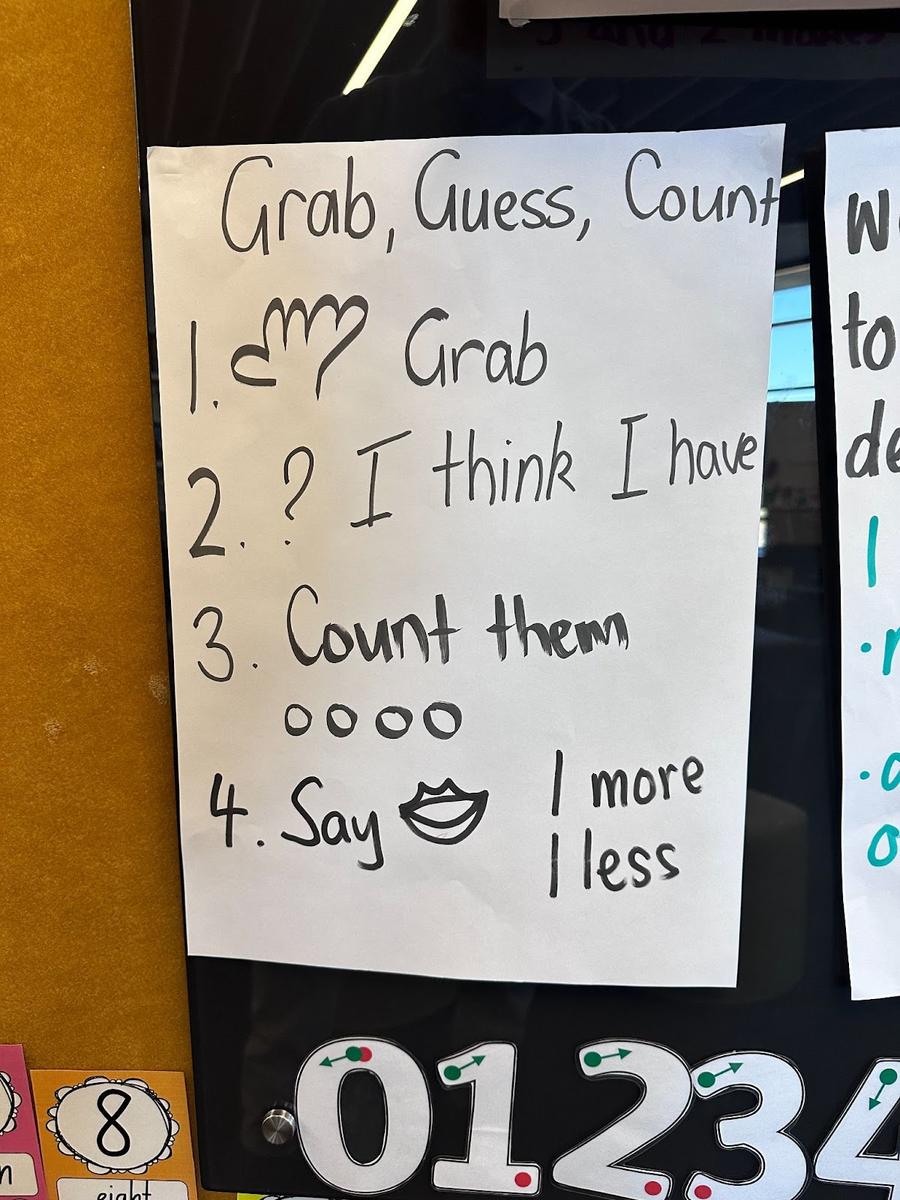 Grab, Guess, Count
1. Grab
2. ? I think I have
3. Count them
4. Say
1 more
1 less
to
1
0 1 2 3 4
8
eight